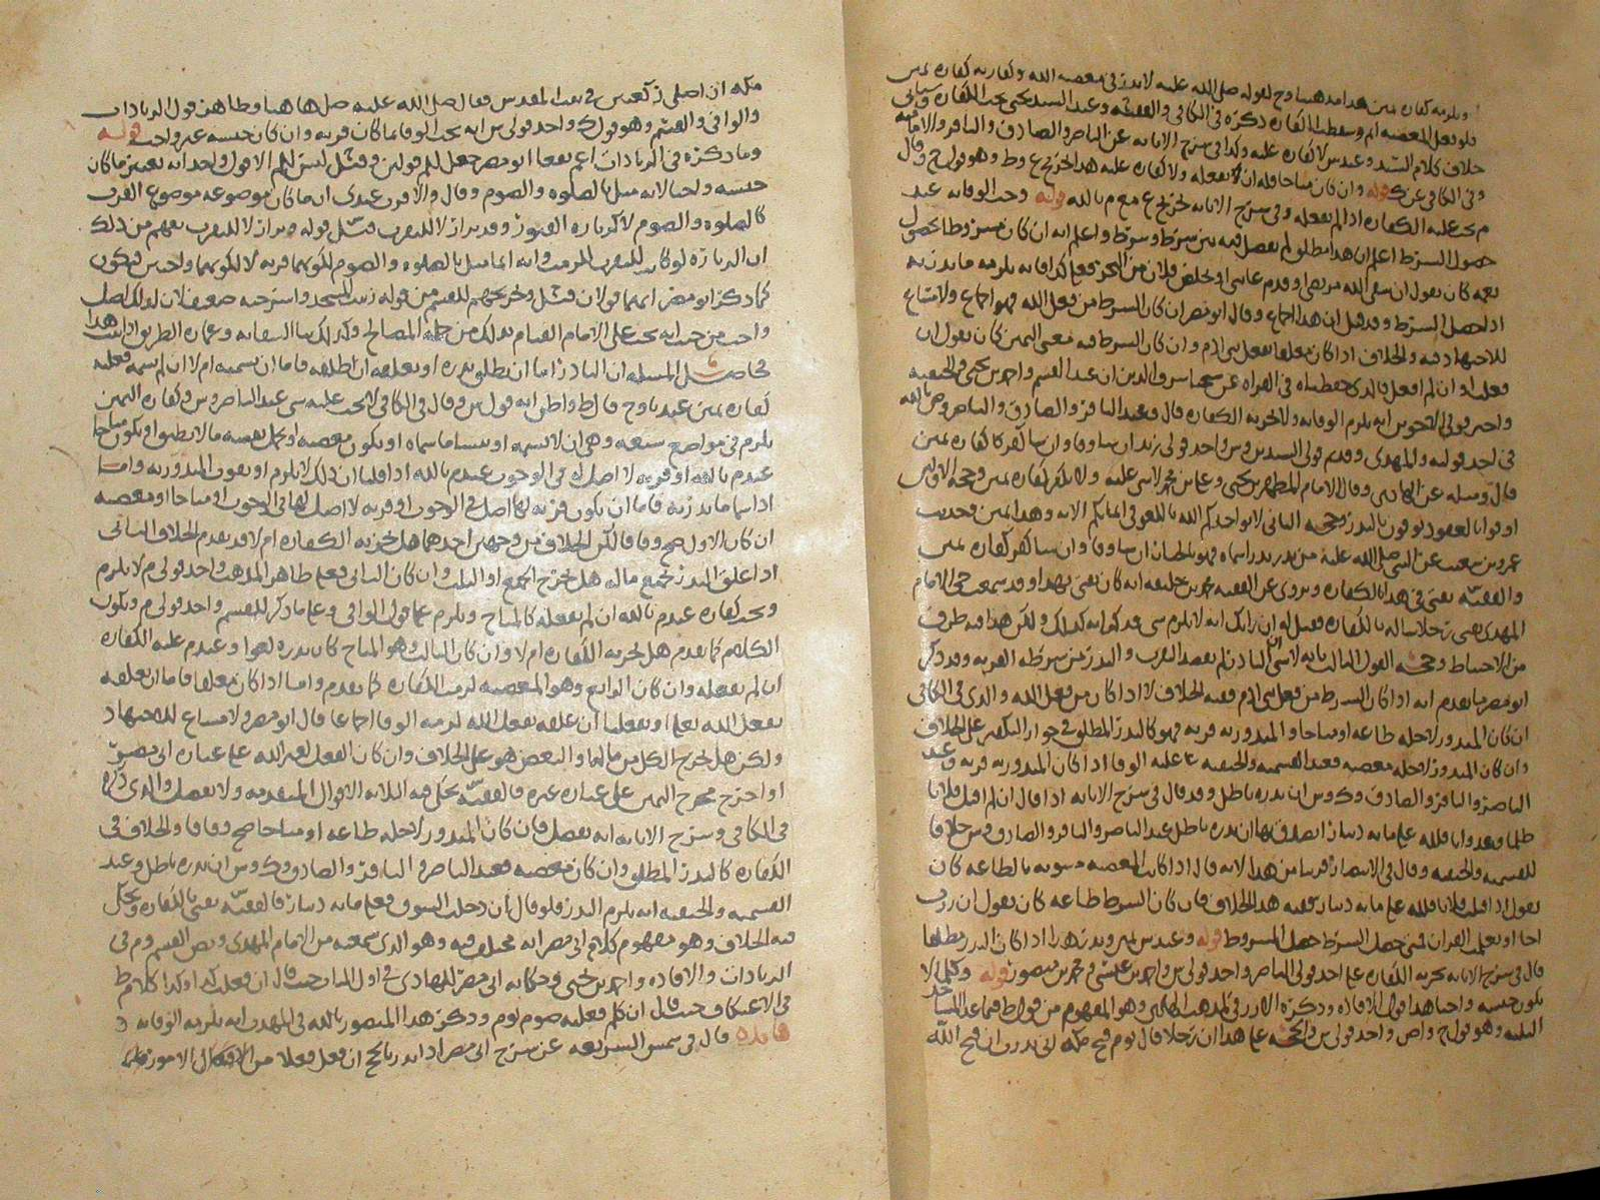 ويلزمه كفاره يمين هدا مدهبنا وح لقوله صلى الله عليه لا ندر في معصيه الله وكفارته كفاره يمين
فلو فعل المعصيه اثم وسقطت الكفاره دكره في الكافي والفقيه وعند السيد يحيى تجب الكفاره
خلاف كلام السيد وعند س لا كفاره عليه وكدا في شرح الابانه عن الناصر والصادق والباقر والاماميه
وفي الكافي عن ك قوله وان كان مباحا فله ان لا يفعله ولا كفاره عليه هدا احد تخريجي ع وط وهو قول ح وقال
م تجب عليه الكفاره ادا لم يفعله وفي شرح الابانه تخريج ع مع م بالله قوله وجب الوفا به عند
حصول الشرط اعلم ان هدا مطلق لم يفصل فيه بين شرط وشرط واعلم انه ان كان مشروطا بحصول
نعمه كان يقول ان شفى الله مريضي او قدم غايبي او تخلص فلان من البحر فعلي كدا فانه يلزمه ما ندر به
ادا حصل الشرط وقد قيل ان هدا اجماع وقال ابو مضر ان كان الشرط من فعل الله فهو اجماع ولا امتناع
للاجتهاد فيه والخلاف ادا كان معلقا بفعل بني ادم وان كان الشرط فيه معنى اليمين كان يقول ان
فعلت او ان لم افعل فالدي حفظناه في القراه عن شيخنا شرف الدين ان عند القسم واحمد بن يحيى والحنفيه
واحد قولي الاخوين انه يلزم الوفا به ولا تجزيه الكفاره قال وعند الباقر والصادق والناصر وص بالله
في احد قوليه والمهدي وقديم قولي السيدين وس واحد قولي زيد ان شا وفا وان شا كفر كفاره يمين
قال ومثله عن الهادي وقال الامام المطهر بن يحيى وعلي بن محمد لا شي عليه ولا يكفر كفاره يمين وحجه الاولين
اوفوا بالعقود يوفون بالندر وحجه الثاني لا يواخدكم الله باللغو في ايمانكم الايه وهدا يمين وحديث
عمرو بن شعيب عن النبي صلى الله عليه من ندر ندرا سماه فهو بالخيار ان شا وفا وان شا كفر كفاره يمين
والفقيه يفتي في هدا بالكفاره ويروى عن الفقيه محمد بن خليفه انه كان يفتي بهدا وقد سمعت حي الامام
المهدي يفتي رجلا ساله بالكفاره فقيل له ان رايك انه لا يلزم شي فدكر انه كدلك ولكن هدا فيه طرف
من الاحتياط وحجه القول الثالث بانه لا شي ان النادر لم يقصد التقرب والندر من شرطه القربه وقد دكر
ابو مضر ما تقدم انه ادا كان الشرط من فعل بني ادم ففيه الخلاف لا ادا كان من فعل الله والدي في الكافي
ان كان المندور لاجله طاعه او مباحا والمندور به قربه فهو كالندر المطلق في جواز التكفير على الخلاف
وان كان المندور لاجله معصيه فعند القسميه والحنفيه عليه الوفا ادا كان المندور به قربه وعند
الناصر والباقر والصادق وك وس ان ندره باطل وقد قال في شرح الابانه ادا قال ان لم اقتل فلانا
ظلما وعدوانا فلله علي مايه دينار اتصدق بها ان ندره باطل عند الناصر والباقر والصادق وس خلافا
للقسميه والحنفيه وقال في الانتصار قريبا من هدا لانه قال ادا كانت المعصيه مشوبه بالطاعه كان
يقول ادا قتلت فلانا فلله علي مايه دينار ففيه هدا الخلاف فان كان الشرط طاعه كان يقول ان زرت
اخا او تعلمت القران فمتى حصل الشرط حصل المشروط قوله وعند س يمين وندر هدا ادا كان الندر مطلقا
قال في شرح الابانه تجزيه الكفاره على احد قولي الناصر واحد قولي س واحمد بن عيسى ومحمد بن منصور قوله وكلما لا
يكون جنسه واجبا هدا قول الافاده ودكره الازرقي لمدهب الهادي وهو المفهوم من قول ط فما عد المساجد
الثلثه وهو قول ح وص واحد قولي س والحجه على هدا ان رجلا قال يوم فتح مكه اني ندرت ان فتح الله
مكه ان اصلي ركعتين في بيت المقدس فقال صلى الله عليه صل هاهنا وظاهر قول الزيادات
والوافي والقسم وهو قول ك واحد قولي س انه يجب الوفا بما كان قربه وان كان جنسه غير واجب قوله
وما دكره في الزيادات اعم نفعا ابو مضر جعل للم قولين وقيل ليس للم الا قول واحد انه يعتبر ما كان
جنسه واجبا لانه مثل بالصلوه والصوم وقال والاقرب عندي ان ما كان موضوعه موضوع القرب
كالصلوه والصوم لا كزياره القبور وقد يراد لا للتقرب قيل قوله وتراد لا للتقرب يفهم من دلك
ان الزياره لو كانت للتقرب لزمت وانه انما مثل بالصلوه والصوم لكونهما قربه لا لكونهما واجبين فتكون
كما دكر ابو مضر انهما قولان وقيل وتخريجهم للقسم من قوله زيت المسجد واسرجته ضعيف لان له اصل
واجب من حيث انه يجب على الامام القيام بدلك من جمله المصالح وكدلك بنا السقايه وعماره الطريق ادا ثبت هدا
فحاصل المسله ان النادر اما ان يطلق ندره او يعلقه ان اطلقه فاما ان يسميه ام لا ان لم يسمه فعليه
كفاره يمين عند نا وح قال ط واظن انه قول س وقال في الكافي لا يجب عليه شي عند الناصر وس وكفاره اليمين
يلزم في مواضع سبعه وهي ان لا يسميه او ينسا ما سماه او يكون معصيه او يحمل نفسه ما لا يطيق او يكون مباحا
عند م بالله او قربه لا اصل له في الوجوب عند م بالله ادا قلنا ان دلك لا يلزم او يفوت المندور به واما
ادا سما ما ندر به فاما ان يكون قربه لها اصل في الوجوب او قربه لا اصل لها في الوجوب او مباحا او معصيه
ان كان الاول صح وفاقا لكن الخلاف من وجهين احدهما هل تجزيه الكفاره ام لا وقد تقدم الخلاف الثاني
ادا علق الندر بجميع ماله هل يخرج الجميع او الثلث وان كان الثاني فعلى ظاهر المدهب واحد قولي م لا يلزم
وتجب كفاره عند م بالله ان لم يفعله كالمباح ويلزم على قول الوافي وعلى ما دكر للقسم واحد قولي م ويكون
الكلام كما تقدم هل تجزيه الكفاره ام لا وان كان الثالث وهو المباح كان ندره لغوا وعند م عليه الكفاره
ان لم يفعله وان كان الرابع وهو المعصيه لزمت الكفاره كما تقدم واما ادا كان معلقا فاما ان يعلقه
بفعل الله تعلى او بفعلنا ان علقه بفعل الله لزمه الوفا اجماعا قال ابو مضر ولا مساغ للاجتهاد
ولكن هل يخرج الكل من ماله او البعض هو على الخلاف وان كان الفعل لغير الله على عباره ابي مضر
او اخرج مخرج اليمين على عباره غيره فالفقيه يحكي فيه الثلاثه الاقوال المتقدمه ولا يفصل والدي دكره
في الكافي وشرح الابانه انه يفصل فان كان المندور لاجله طاعه او مباحا صح وفاقا والخلاف في
الكفاره كالندر المطلق وان كان معصيه فعند الناصر والباقر والصادق وك وس ان ندره باطل وعند
القسميه والحنفيه انه يلزم الندر فلو قال ان دخلت السوق فعلي مايه دينار فالفقيه يفتي بالكفاره ويحكي
فيه الخلاف وهو مفهوم كلام ابي مضر انه مختلف فيه وهو الدي سمعته من الامام المهدي ونص القسم وم في
الزيادات والافاده واحمد بن يحيى وحكايه ابي مضر للهادي في اول المدار حيث قال ان فعلت كدا وكدا كلام ط
في الاعتكاف حيث قال ان كلم فعليه صوم يوم ودكر هدا المنصور بالله في المهدب انه يلزمه الوفا به
فايده قال في شمس الشريعه عن شرح ابي مضر ادا ندر بالحج ان فعل فعلا من الافعال الامور